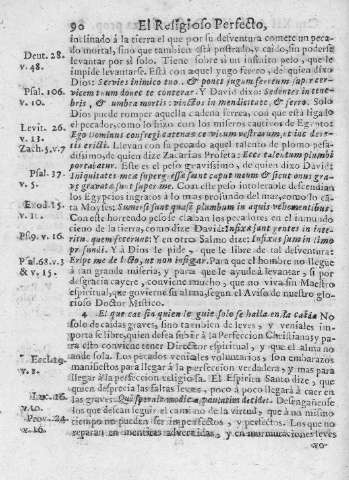 90 El Religioso Perfecto,
inclinado á la tierra el que por su desventura comete un peca-
do mortal, sino que tambien está postrado, y caido, sin poderse
levantar por sí solo. Tiene sobre sí un infinito peso, que le
impide levantarse. Está con aquel yugo ferreo, de quien dixo
Dios: Servies inimico tuo, & ponet jugum ferreum super cer-
vicem tuam donec te conterat. Y David dixo: Sedentes in tene-
bris, & umbra mortis: vinctos in mendicitate, & ferro. Solo
Dios puede romper aquella cadena ferrea, con que está ligado
el pecador, como lo hizo con los miseros cautivos de Egypto:
Ego Dominus confregi catenas cervicum vestrarum, et
erecti. Llevan con sa pecado aquel talento de plomo pesa-
disimo, de quien dize Zacarias Profeta: Ecce talentum plumbi
portabatur. Este es el peso gravissimo, de quien dixo David:
Iniquitates meæ supergressæ sunt caput meum & sicut onus gra-
ve gravatæ sunt super me. Con este peso intolerable descendian
los Egypcios ingratos á lo mas profundo del mar, como lo can-
ta Moyses: Submersi sunt quasi plumbum in aquis vehementibus.
Con este horrendo peso se claban los pecadores en el inmundo
cieno de la tierra, como dize David: Infixæ sunt gentes in interi-
tu, quem fecerunt: Y en otro Salmo dize: Infixus sum in limo
profundi. Y á Dios le pide, que le libre de tal desventura:
Eripe me de luto, ut non infigar. Para que el hombre no llegue
á tan grande miseria, y para que le ayude á levantar, si por
desgracia cayere, conviene mucho, que no viva sin Maestro
espiritual, que govierne su alma, segun el Aviso de nuestro glo-
rioso Doctor Mistico.
4 El que cae sin quien le guie, solo se halla en la caida No
solo de caidas graves, sino tambien de leves, y veniales impor-
ta se libre, quien desea subir á la Perfeccion Christiana; y pa-
ra esto conviene tener Director espiritual, y que el alma no
ande sola. Los pecados veniales voluntarios, son embarazos
manifiestos para llegar á la perfeccion verdadera, y mas para
llegar á la perfeccion religiosa. El Espiritu Santo dize, que
quien desprecia las faltas leves, poco á poco llegará á caer en
las graves: Qui spernit modica, paulatim decidet. Desengañense
los que desean seguir el camino de la virtud, que á un mismo
tiempo no pueden ser imperfectos, y perfectos. Los que no
reparan en mentiras advertidas, y en murmuraciones leves
Deut. 28.
v. 48.
Psal. 106.
v. 10.
Levit. 26.
v. 13.
Zach. 5. v. 7
Psal. 37
v. 5.
Exod. 15.
v. 11.
Ps. 9. v. 16.
Psal. 68. v. 3
& v. 15.
Eccli. 19.
v. 1.
Luc. 16.
v. 10.
Prov. 24.
v. 16.